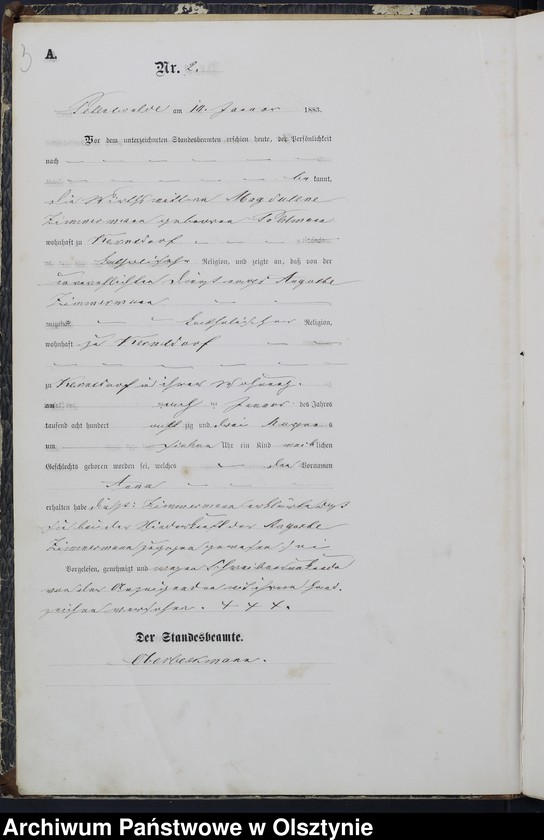 3
A.
Nr. 2.
am 10. Januar 1883.
Vor dem unterzeichneten Standesbeamten erschien heute, der Persönlichkeit
nach
bekannt,
die Magdalene
Zimmermann geborene Pohlmann
wohnhaft zu
katholischer Religion, und zeigte an, daß von der
unverehelichten Dienstmagd
Zimmermann
katholischer Religion,
wohnhaft zu
zu in ihrer Wohnung
am Januar des Jahres
tausend acht hundert achtzig und drei
um sieben Uhr ein Kind weiblichen
Geschlechts geboren worden sei, welches den Vornamen
Anna
erhalten habe. Zimmermann erklärte daß
sie bei der Niederkunft der
Zimmermann zugegen gewesen sei
Vorgelesen, genehmigt und wegen Schreibensunkunde
von der Anzeigenden mit ihrem Hand-
zeichen versehen. + + +.
Der Standesbeamte.
Oberbeckmann.
Archiwum Państwowe w Olsztynie